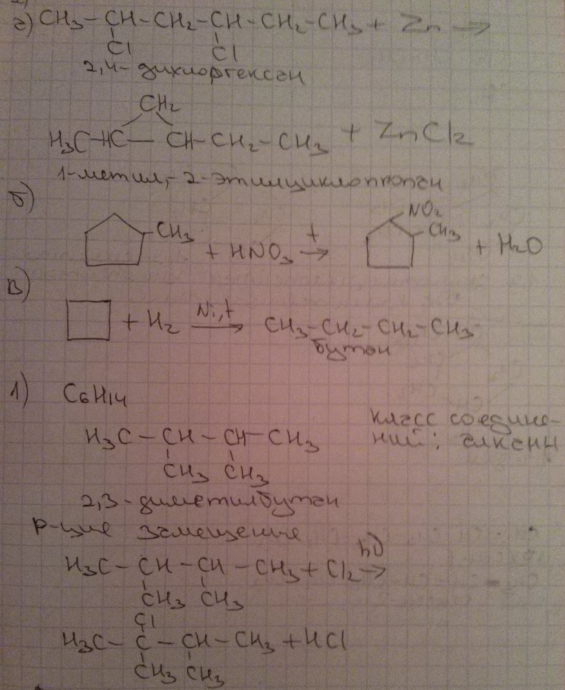 г) CH3-CH-CH2-CH-CH2-CH3 + Zn →
Cl Cl
2,4-дихлоргексан
CH2
H3C-HC — CH-CH2-CH3 + ZnCl2
1-метил,-2-этилциклопропан
б)
NO2
CH3 + HNO3 t → CH3 + H2O
в)
+ H2 Ni,t → CH3-CH2-CH2-CH3
бутан
1) C6H14
класс соедине-
H3C - CH - CH - CH3 ний: алканы
CH3 CH3
2,3-диметилбутан
Р-ция замещения
H3C - CH - CH - CH3 + Cl2 hν →
CH3 CH3
Cl
H3C - C - CH - CH3 + HCl
CH3 CH3